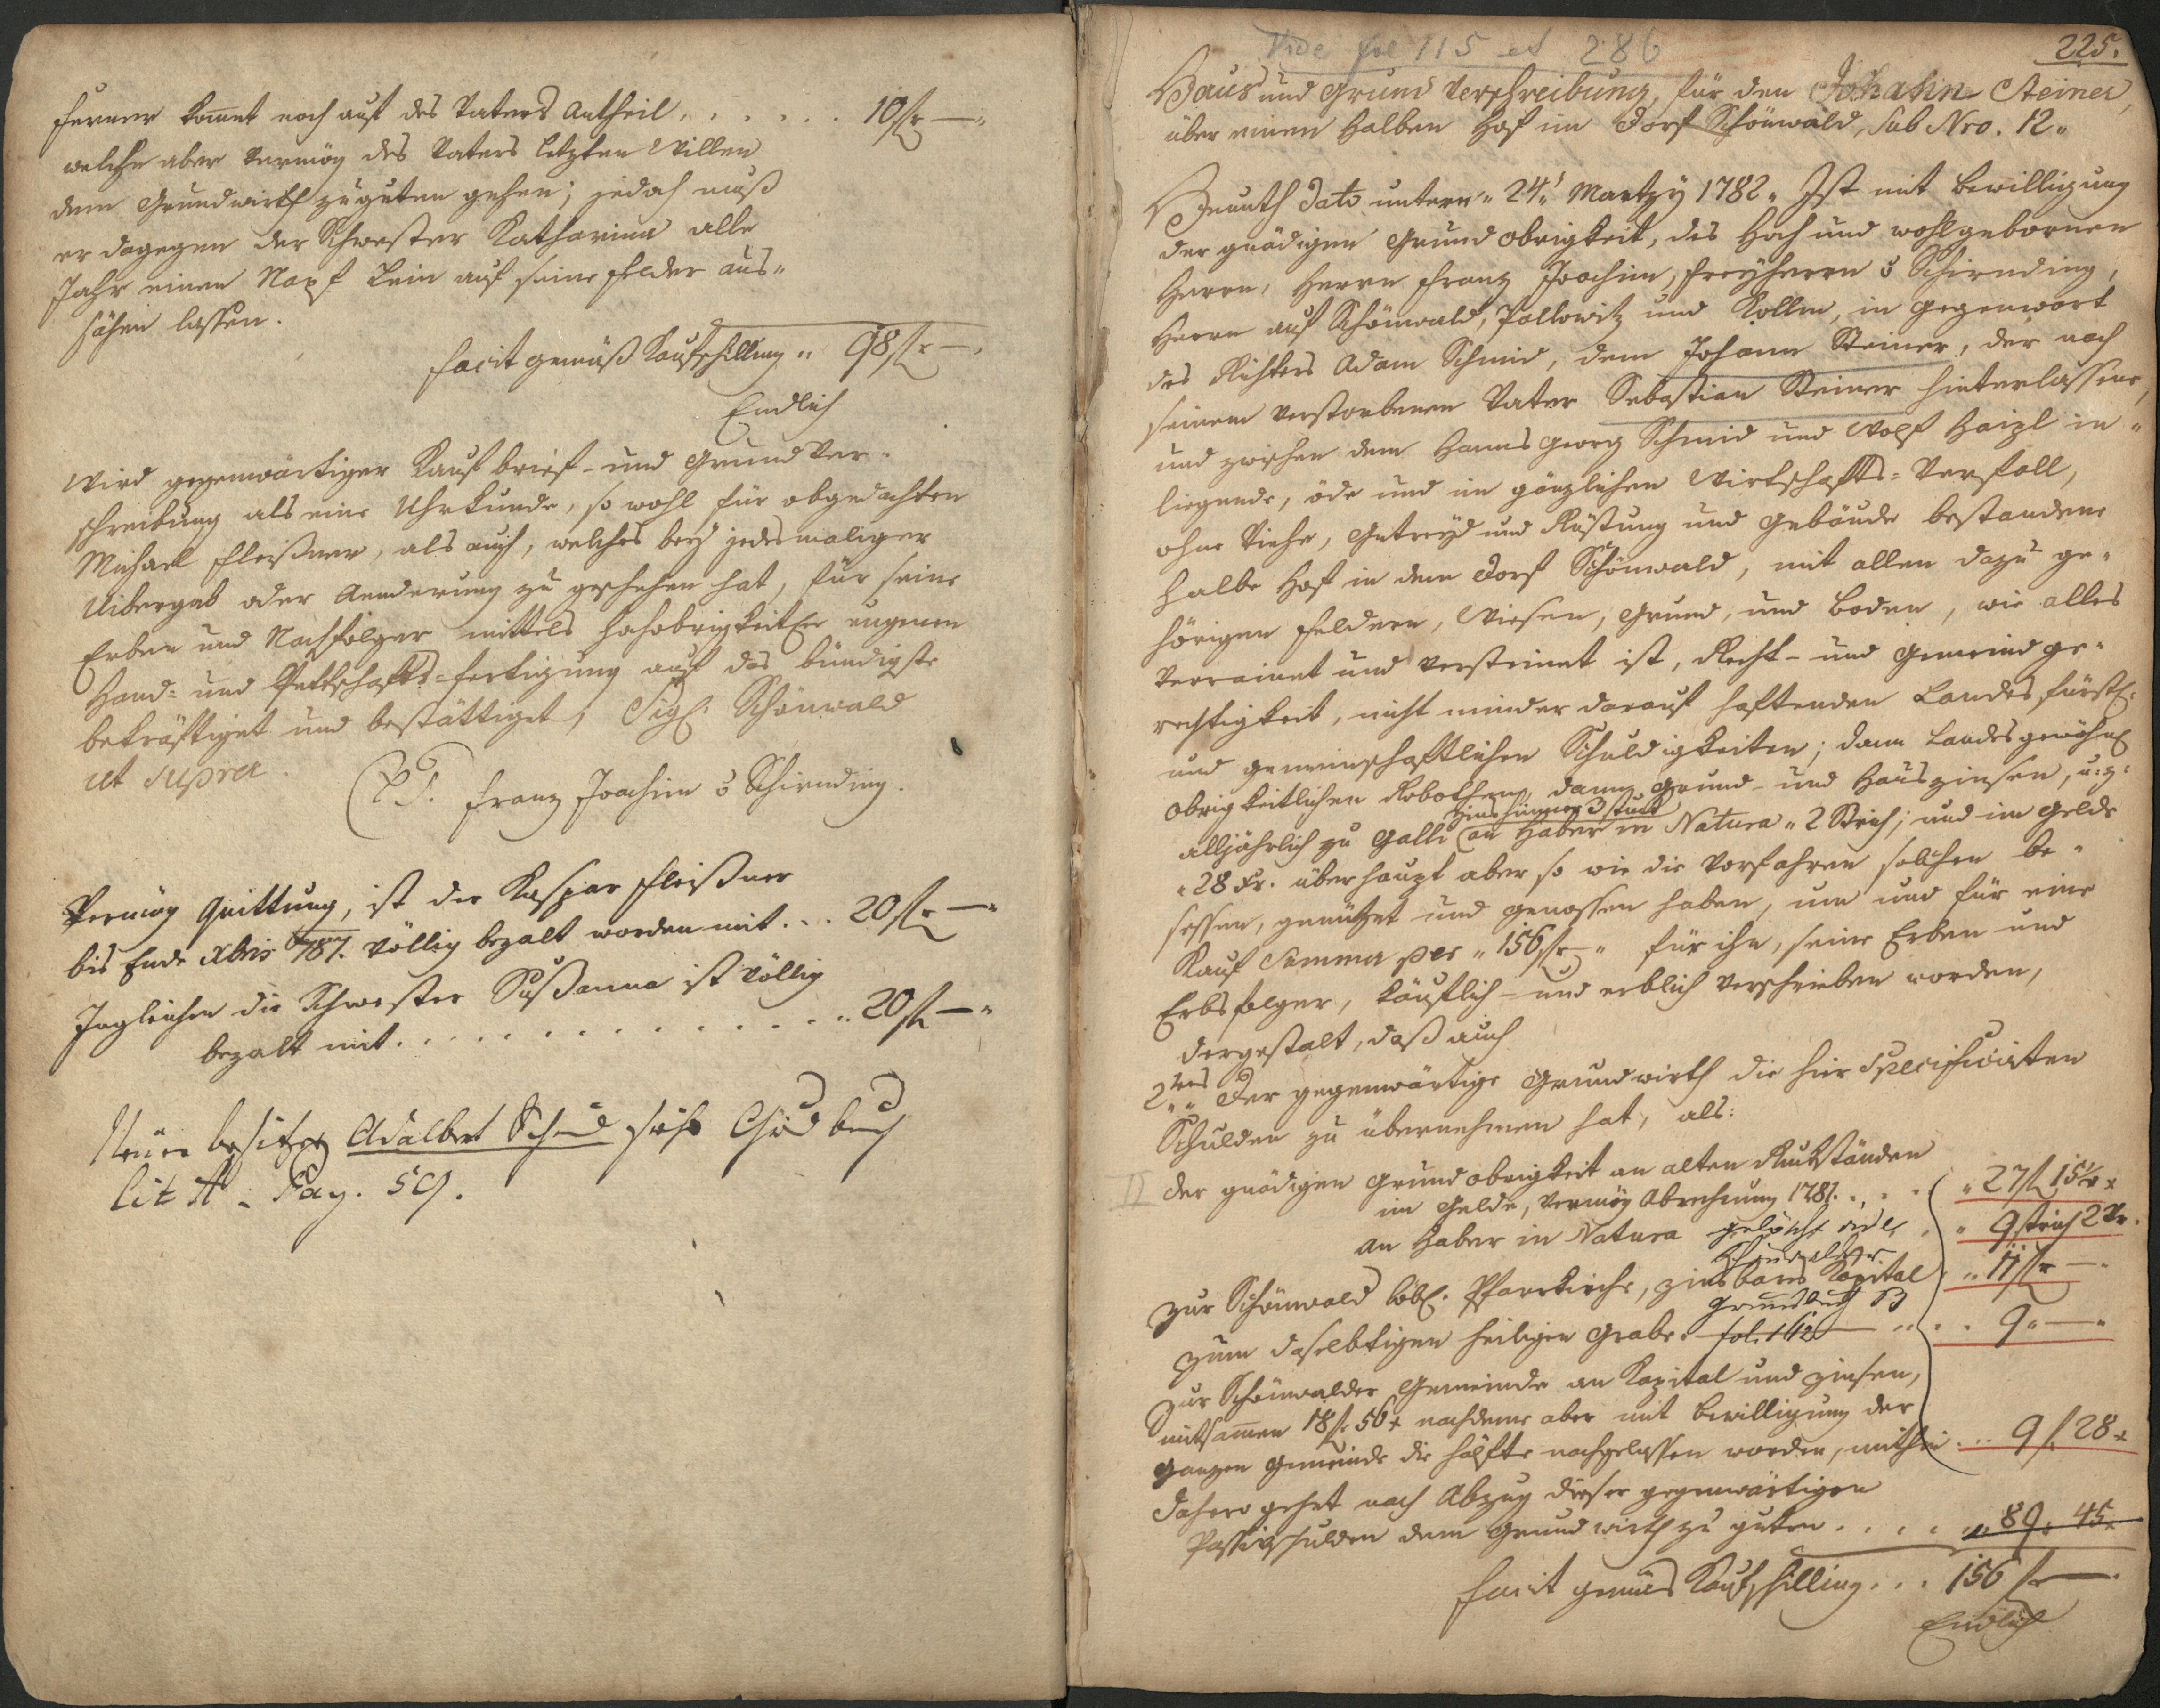 ferner kom̄t noch auf des Vaters Antheil . . . . . . 10 fr —"
welche aber vermög des Vaters letzten Willen
dem Grundwirth zuguten gehen; jedoch muß
er dagegen der Schwester Katharina alle
Jahr einen Napf Lein auf seine Felder aus-
sähen lassen.
facit gemäß Kaufschilling " 98 fr —"
Endlich
Wird gegenwärtiger Kaufbrief- und Grund Ver-
schreibung als eine Uhrkunde, so wohl für obgedachten
Michael Fleißner, als auch, welches bey jedesmaliger
Uibergab oder Aenderung zu geschehen hat, für seine
Erben und Nachfolger mittels hochobrigkeitl. eugenen
Hand- und Pettschafts-fertigung auf das bündigste
bekräftiget und bestättiget; Sigl. Schönwald
ut supra.
(L S. Franz Joachim v Schirnding.
Vermög Quittung, ist der Kaspar Fleißner
bis Ende Xbris 787. völlig bezalt worden mit . . 20 fr —"
Ingleichen die Schwester Sußanna ist völlig
bezalt mit . . . . . . . . . . . . . . 20 fr —"
Neuer besitzer Adalbert Schmid sieh Grūdbuch
Lit A. Pag. 59.
Vide fol 115 et 286
225.
Haus und Grund Verschreibung, für den Johann Steiner,
über einen Halben Hof im Dorf Schönwald, Sub Nro. 12"
Heunth Dato untern " 24t Martzy 1782 " Ist mit Bewilligung
der gnädigen Grund obrigkeit, des Hoch und wohlgebornen
Herrn, Herrn Franz Joachim, Freyherrn v Schirnding,
Herrn auf Schönwald, Pollowitz und Kollm, in gegenwart
des Richters Adam Schmid, dem Johann Steiner, der nach
seinem verstorbenen Vater Sebastian Steiner hinterlassene,
und zwischen dem Hanns Georg Schmid und Wolf Haizl in-
liegende, öde und im gänzlichen Wirtschafts-Verfall,
ohne Viehe, Getreyd und Rüstung und Gebäude bestandene
halbe Hof in dem Dorf Schönwald, mit allen dazu ge-
hörigen Feldern, Wiesen, Grund, und Boden, wie alles
verrainet und versteinet ist, Recht- und Gemeindge-
rechtigkeit, nicht minder darauf haftenden Landesfürstl.
und gemeinschaftlichen Schuldigkeiten; dann Landesgewöhnl.
obrigkeitlichen Robothen, dann Grund- und Hauszinsen, u: z:
Zins hüner 3 stuck
alljährlich zu Galli (an Haber in Natura " 2 Strich; und im Gelde
" 28 xr. überhaupt aber so wie die Vorfahren solchen be-
sessen, genützet und genossen haben, um und für eine
Kauf Summa per " 156 fr — " für ihn, seine Erben und
Erbsfolger, käuflich- und erblich verschrieben worden,
dergestalt, daß auch
2tens Der gegenwärtige Grundwirth die hier Specificirten
Schulden zu übernehmen hat, als:
Der gnädigen Grundobrigkeit an alten Rückständen
im Gelde, vermög Abrechnung 1781. . . . " 27 fr 15½ x
an Haber in Natura gelöscht . " 9 strich 2 Vr.
zur Schönwald löbl. Pfarrkirche, zinsbares Kapital . " 11 fr —"
Grundbuch B
zum daselbstigen heiligen Grabe . fol. 162 — " . . 9 " — "
Zur Schönwalder Gemeinde an Kapital und Zinsen,
mitsam̄en 18 fr 56 x nachdeme aber mit Bewilligung der
ganzen Gemeinde die hälfte nachgelassen worden, mithin . . . 9 f. 28 x
Dahero gehet nach Abzug dieser gegenwärtigen
Passivschulden dem Grundwirth zu guten . . . . . 89. 45.
facit gemäs Kaufschilling . . . 156 fr —
Endlich